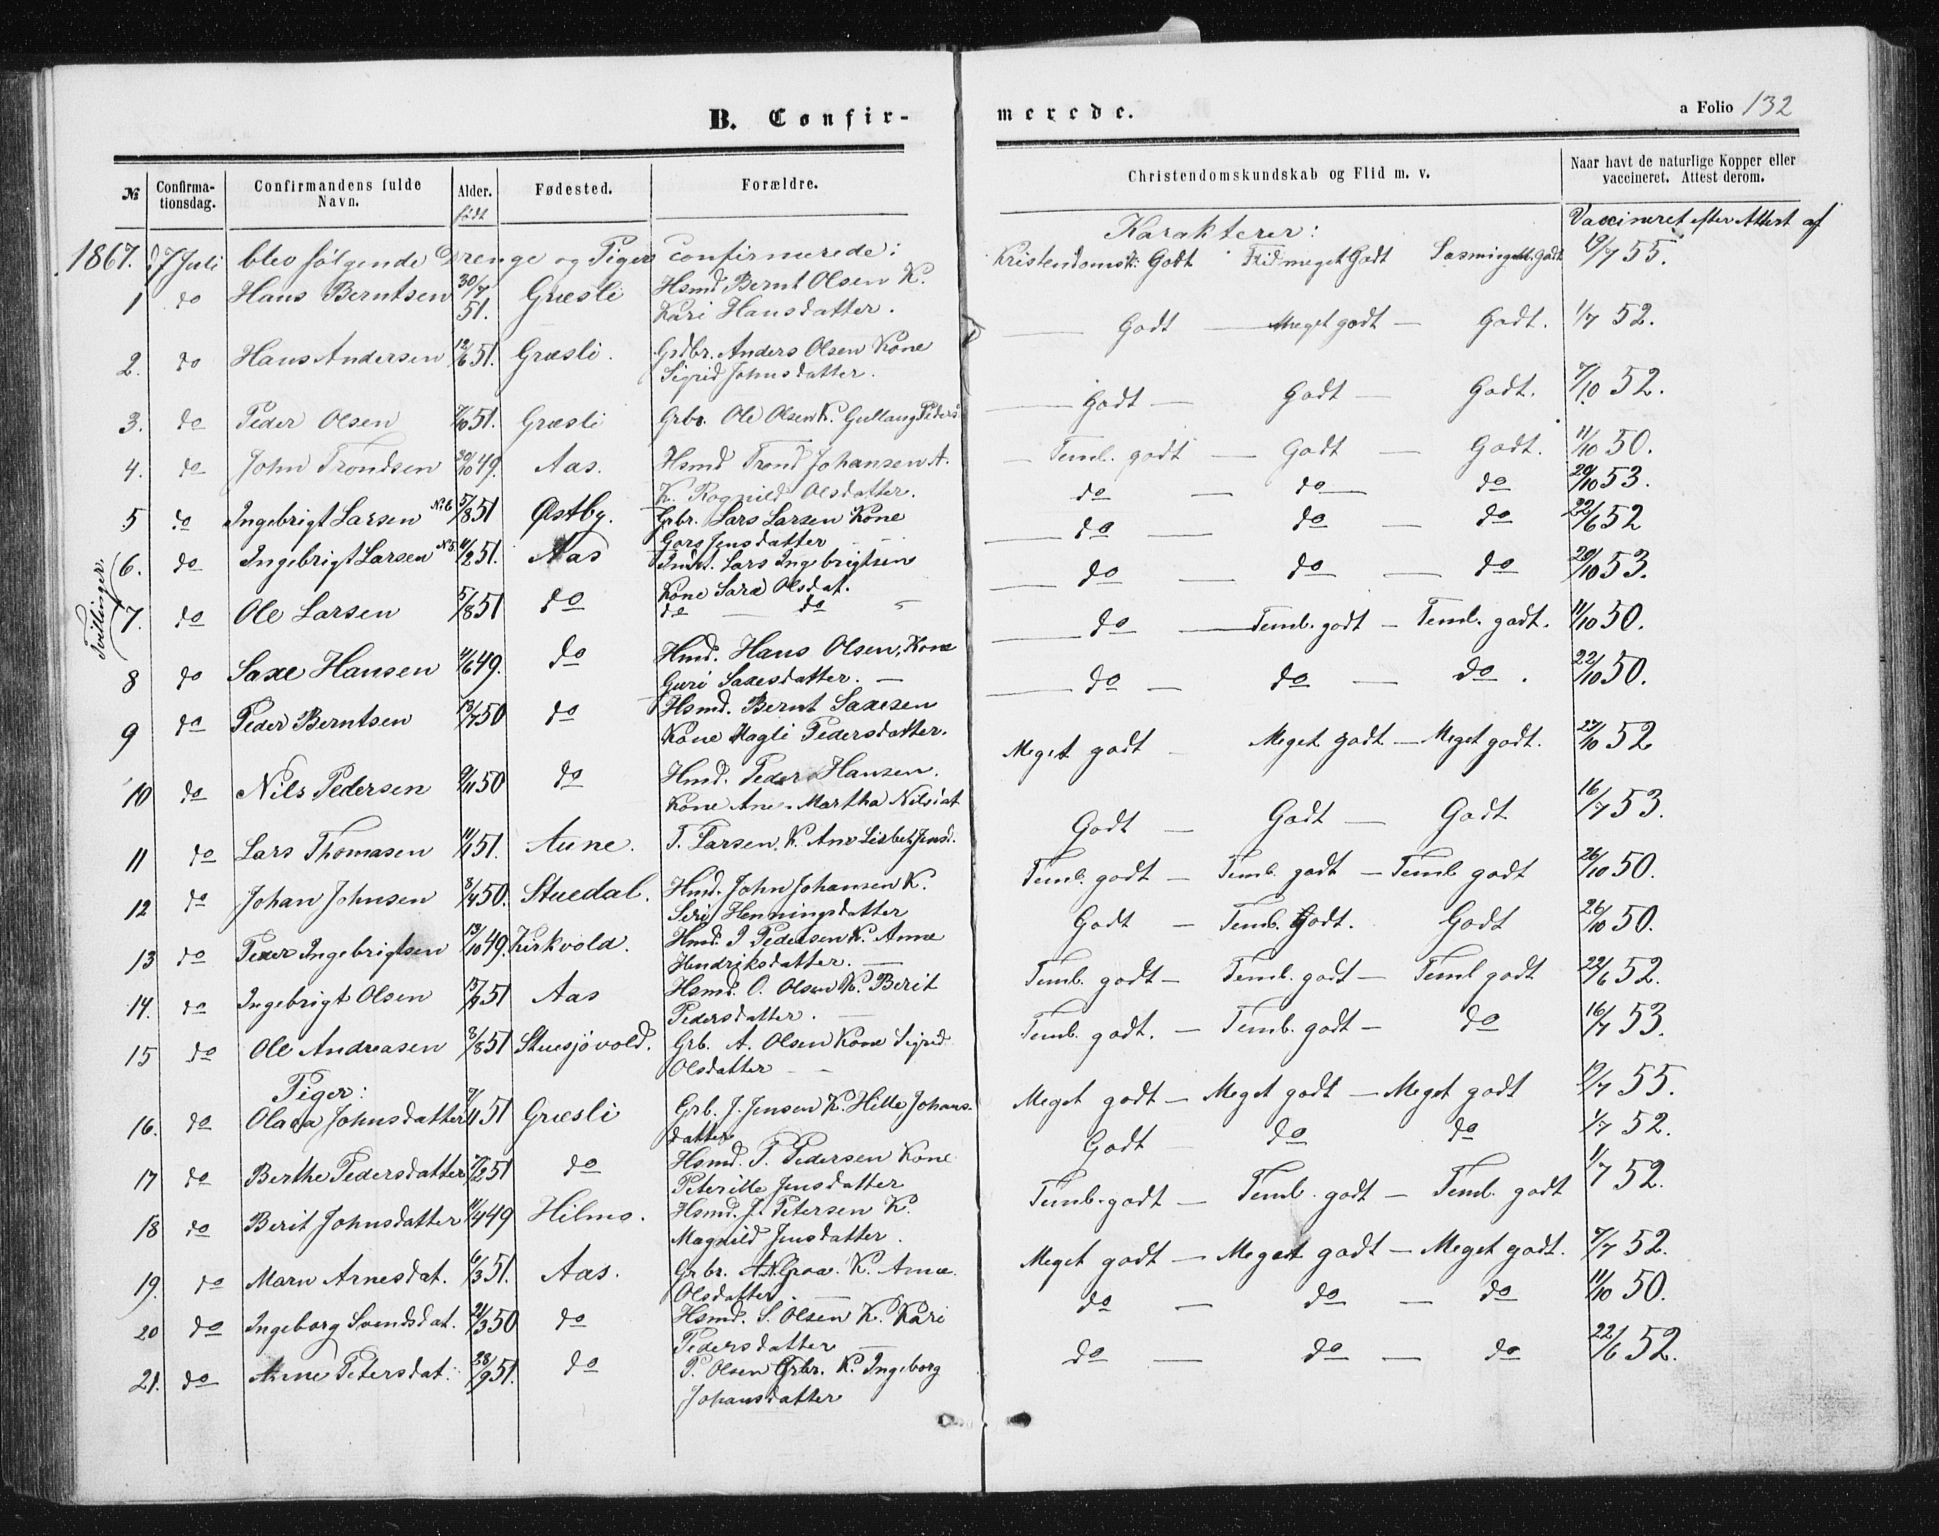 B. Confir-
merede.
a Folio 132
№
Confirma-
tionsdag.
Confirmandens fulde
Navn.
Alder.
født
Fødested.
Forældre.
Christendomskundskab og Flid m. v.
Naar havt de naturlige Kopper eller
vaccineret. Attest derom.
Karakterer:
Vaccineret efter Attest af
1867. d 7 Juli blev følgende Drenge og Piger confirmerede:
Kristendomsk: Godt Flid meget Godt Godt 19/7 55.
1 do Hans Berntsen 30/7 51. Græsli Hsmd Bernt Olsen K.
Kari Hansdatter.
— Godt — Meget godt — Godt. 1/7 52.
2. do Hans Andersen 12/6 51. Græsli. Grdbr. Anders Olsen Kone
Sigrid Johnsdatter.
— Godt — Godt Godt. 7/10 52.
3. do Peder Olsen 7/10 51. Græsli Grbr. Ole Olsen K. Gullaug Peders
— Teml. godt — Godt — Godt. 11/10 50.
4. do John Trondsen 20/10 49. Aas. Hsmd Trond Johansen A.
K. Ragnild Olsdatter.
do — do — do 20/10 53.
5 do Ingebrigt Larsen No 6 5/8 51 Østby. Grbr. Lars Larsen Kone
Goro Jensdatter
— do — do — do 22/6 52
Tvillinger.
6. do Ingebrigt Larsen No 5 4/2 51. Aas Lars Ingebrigtsen
Kone Sara Olsdat.
— do — do — do 20/10 53.
7. do Ole Larsen 5/8 51 do do — do
— do — Temb. godt — Teml. godt. 11/10 50.
8 do Saxe Hansen 4/6 49. do Hmd. Hans Olsen, Kone
Guri Saxesdatter. —
— do — do — do. 22/10 50.
9 do Peder Berntsen 13/7 50 do Hsmd. Bernt Saxesen
Kone Magli Pedersdatter.
Meget godt — Meget godt — Meget godt. 27/10 52
10 do Nils Pedersen 9/11 50 do Hmd. Peder Hansen.
Kone Ane Martha Nilsdat
Godt — Godt — Godt 16/7 53.
11 do Lars Thomasen 11/4 51. Aune. T. Larsen. K. Ane Lisbet Jensd.
Temb. godt — Temb. godt — Temb godt 26/10 50.
12 do Johan Johnsen 8/4 50. Stuedal. Hmd. John Johansen K.
Siri Henningsdatter
Godt — Temb. Godt. Godt 26/10 50.
13 do Peder Ingebrigtsen 13/10 49. Kirkvold. Hmd. I Pedersen K. Anne
Hendriksdatter. —
Temb. godt — Temb. godt — Teml godt 22/6 52.
14. do Ingebrigt Olsen 13/4 51 Aas Hsmd. O. Olsen K. Berit
Pedersdatter. —
Temb. godt. — Temb. godt — do 16/7 53.
15 do Ole Andreasen 3/8 51 Stuesjøvold. Grb. A. Olsen Kone Sigrid
Olsdatter — —
Meget godt — Meget godt — Meget godt 19/7 55.
Piger:
16. do Olava Johnsdatter 7/4 51 Græsli Grb. J. Jensen K. Hille Johans-
datter
Godt do do 1/7 52.
17 do Berthe Pedersdatter 7/2 51 do Hsmd. P. Pedersen Kone
Peterille Jensdatter
Temb. godt — Temb. godt — Temb. godt 1/7 52.
18 do Berit Johnsdatter 11/4 49 Hilmo. Hsmd. J. Petersen K.
Magnild Jensdatter.
Meget godt — Meget godt — Meget godt. 7/7 52.
19. do Marn Arnesdat. 6/3 51. Aas. Grbr. A. N. Groa. K. Anne
Olsdatter —
do — do — do 11/10 50.
20 do Ingeborg Svendsdat. 21/3 50 do Hsmd. S. Olsen K. Kari
Pedersdatter —
do — do — do 22/6 52.
21. do Anne Petersdat. 28/9 51. do P. Olsen Grbr. K. Ingeborg
Johansdatter